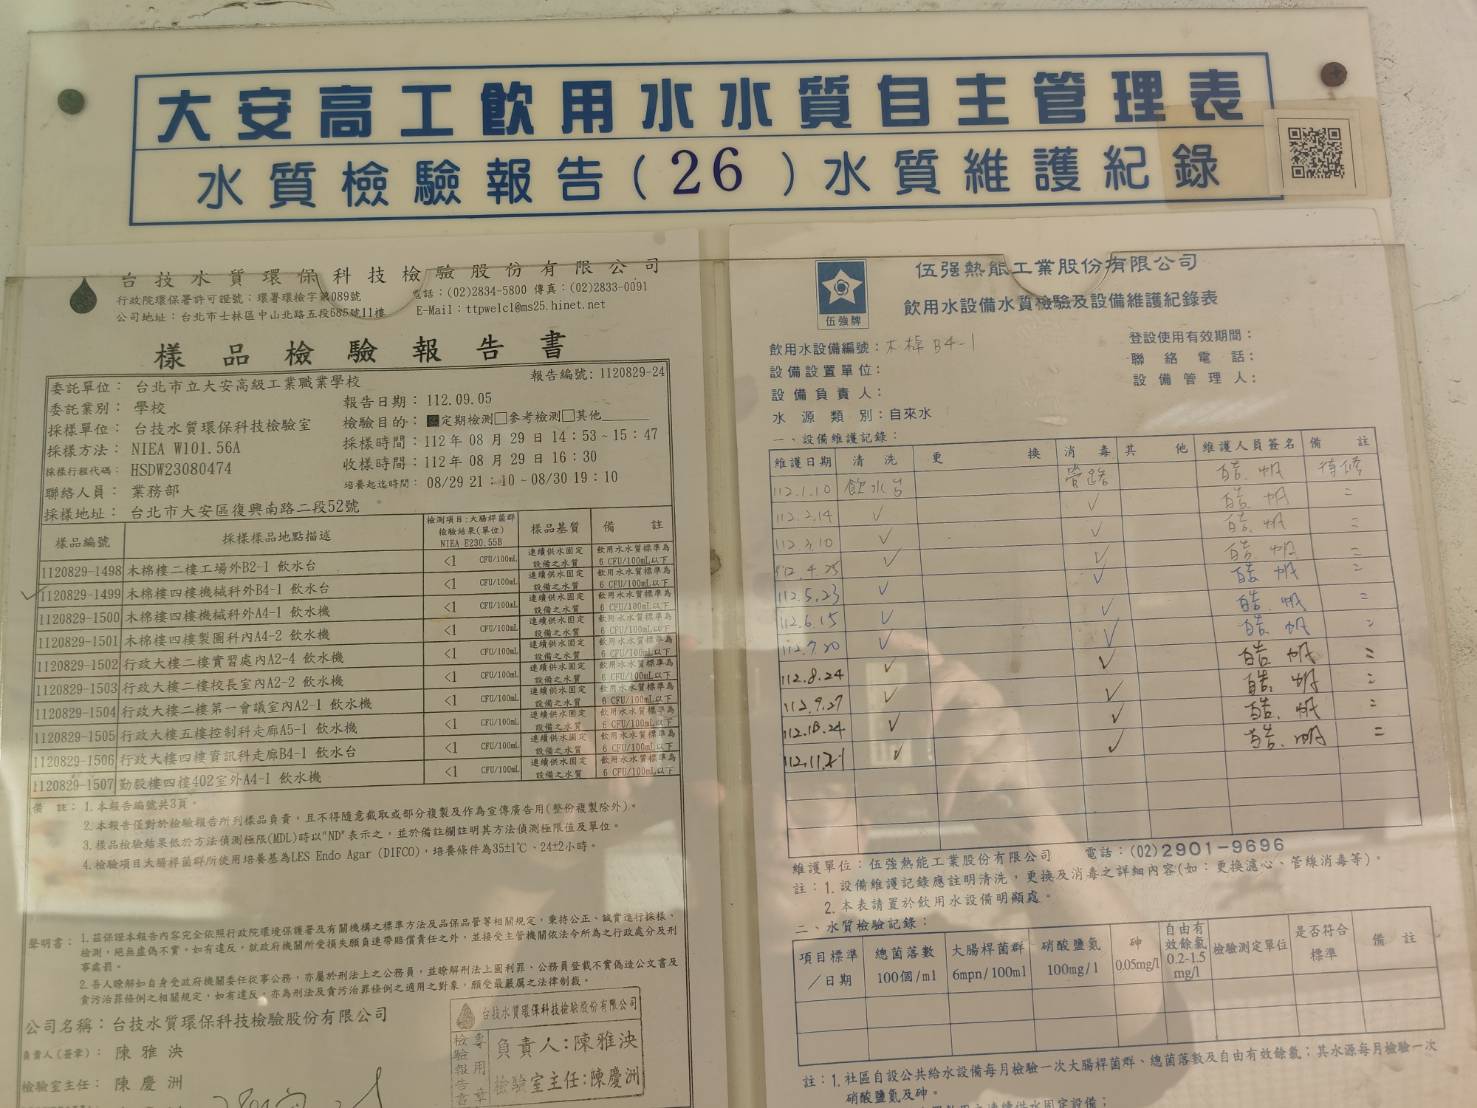 大安高工飲用水水質自主管理表
水質檢驗報告(26)水質維護紀錄
台技水質環保科技檢驗股份有限公司
行政院環保署許可證號:環署環檢字第089號
電話:(02)2834-5800 傳真:(02)2833-0091
公司地址:台北市士林區中山北路五段685號11樓
E-Mail:ttpwelcl@ms25.hinet.net
樣品檢驗報告書
委託單位: 台北市立大安高級工業職業學校
報告編號: 1120829-24
委託業別: 學校
報告日期: 112.09.05
採樣單位: 台技水質環保科技檢驗室
檢驗目的:■定期檢測□參考檢測□其他
採樣方法: NIEA W101.56A
採樣時間:112年 08 月 29 日 14:53~15:47
採樣行程代碼: HSDW23080474
收樣時間:112年 08 月 29 日 16:30
聯絡人員: 業務部
培養起迄時間: 08/29 21:10~08/30 19:10
採樣地址: 台北市大安區復興南路二段52號
樣品編號 採樣樣品地點描述 檢測項目:大腸桿菌群 檢驗結果(單位) NIEA E230.55B 樣品基質 備註
1120829-1498 木棉樓二樓工場外B2-1 飲水台 <1 CFU/100mL 連續供水固定設備之水質 飲用水水質標準為6 CFU/100mL以下
1120829-1499 木棉樓四樓機械科外B4-1 飲水台 <1 CFU/100mL 連續供水固定設備之水質 飲用水水質標準為6 CFU/100mL以下
1120829-1500 木棉樓四樓機械科外A4-1 飲水機 <1 CFU/100mL 連續供水固定設備之水質 飲用水水質標準為6 CFU/100mL以下
1120829-1501 木棉樓四樓製圖科內A4-2 飲水機 <1 CFU/100mL 連續供水固定設備之水質 飲用水水質標準為6 CFU/100mL以下
1120829-1502 行政大樓二樓實習處內A2-4 飲水機 <1 CFU/100mL 連續供水固定設備之水質 飲用水水質標準為6 CFU/100mL以下
1120829-1503 行政大樓二樓校長室內A2-2 飲水機 <1 CFU/100mL 連續供水固定設備之水質 飲用水水質標準為6 CFU/100mL以下
1120829-1504 行政大樓二樓第一會議室內A2-1 飲水機 <1 CFU/100mL 連續供水固定設備之水質 飲用水水質標準為6 CFU/100mL以下
1120829-1505 行政大樓五樓控制科走廊A5-1 飲水機 <1 CFU/100mL 連續供水固定設備之水質 飲用水水質標準為6 CFU/100mL以下
1120829-1506 行政大樓四樓資訊科走廊B4-1 飲水台 <1 CFU/100mL 連續供水固定設備之水質 飲用水水質標準為6 CFU/100mL以下
1120829-1507 勤毅樓四樓402室外A4-1 飲水機 <1 CFU/100mL 連續供水固定設備之水質 飲用水水質標準為6 CFU/100mL以下
備 註:1.本報告編號共3頁。
2.本報告僅對於檢驗報告所列樣品負責,且不得隨意截取或部分複製及作為宣傳廣告用(整份複製除外)。
3.樣品檢驗結果低於方法偵測極限(MDL)時以"ND"表示之,並於備註欄註明其方法偵測極限值及單位。
4.檢驗項目大腸桿菌群所使用培養基為LES Endo Agar (DIFCO),培養條件為35±1℃、24±2小時。
聲明書:1.茲保證本報告內容完全依照行政院環境保護署及有關機構之標準方法及品保品管等相關規定,秉持公正、誠實進行採樣、
檢測,絕無虛偽不實。如有違反,就政府機關所受損失願負連帶賠償責任之外,並接受主管機關依法令所為之行政處分及刑
事處罰。
2.吾人瞭解如自身受政府機關委任從事公務,亦屬於刑法上之公務員,並瞭解刑法上圖利罪、公務員登載不實偽造公文書及
貪污治罪條例之相關規定,如有違反,亦為刑法及貪污治罪條例之適用之對象,願受最嚴厲之法律制裁。
公司名稱:台技水質環保科技檢驗股份有限公司
負責人(簽章): 陳雅泱
檢驗室主任: 陳慶洲
台技水質環保科技檢驗股份有限公司
檢驗報告專用章
負責人:陳雅泱
檢驗室主任:陳慶洲
伍強牌
伍強熱能工業股份有限公司
飲用水設備水質檢驗及設備維護紀錄表
飲用水設備編號:木棉B4-1
登設使用有效期間:
設備設置單位:
聯絡電話:
設備負責人:
設備管理人:
水源類別:自來水
一、設備維護記錄:
維護日期 清洗 更換 消毒 其他 維護人員簽名 備註
112.1.10 飲水台 管路 皓帆 待修
112.2.14 ✓ ✓ 皓帆 =
112.3.10 ✓ ✓ 皓帆 =
112.4.25 ✓ ✓ 皓帆 =
112.5.23 ✓ ✓ 皓帆 =
112.6.15 ✓ ✓ 皓帆 =
112.7.20 ✓ ✓ 皓帆 =
112.8.24 ✓ ✓ 皓帆 =
112.9.27 ✓ ✓ 皓帆 =
112.10.24 ✓ ✓ 皓帆 =
112.11.21 ✓ ✓ 皓帆 =
維護單位:伍強熱能工業股份有限公司 電話:(02)2901-9696
註:1.設備維護記錄應註明清洗,更換及消毒之詳細內容(如:更換濾心、管線消毒等)。
2.本表請置於飲用水設備明顯處。
二、水質檢驗記錄:
項目標準/日期 總菌落數100個/ml 大腸桿菌群6mpn/100ml 硝酸鹽氮100mg/l 砷0.05mg/l 自由有效餘氯0.2-1.5mg/l 檢驗測定單位 是否符合標準 備註
註:1.社區自設公共給水設備每月檢驗一次大腸桿菌群、總菌落數及自由有效餘氯;其水源每月檢驗一次
硝酸鹽氮及砷。